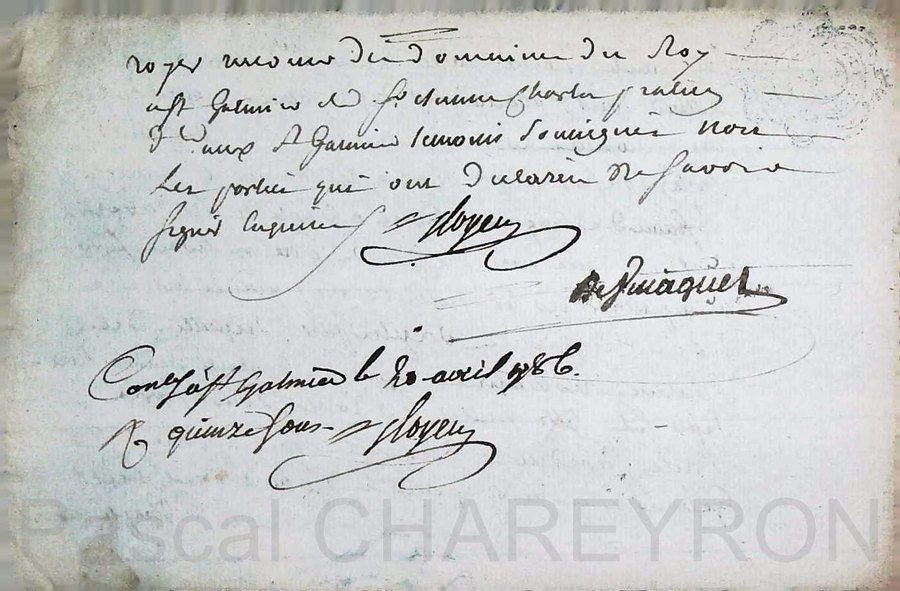 royer receveur des domaines du Roy
a St Galmier et Sr Etienne Charles pratien
de aux St Galmier temoins soussignés non
Les parties qui ont declarées ne savoir
signer enquises Royer
Desmaquet
Con.lé à St Galmier le 20 avril 1786.
R quinze sous Royer
Pascal CHAREYRON